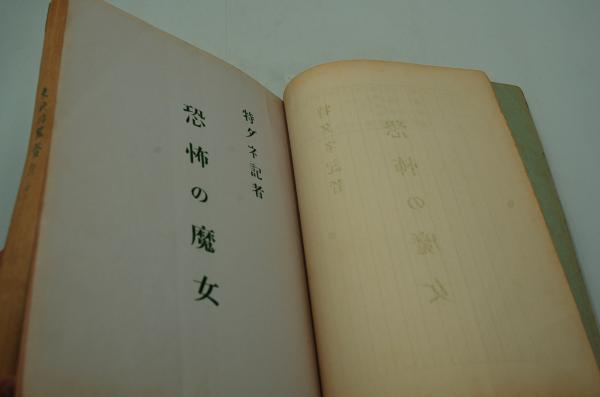 特ダネ記者
恐怖の魔女